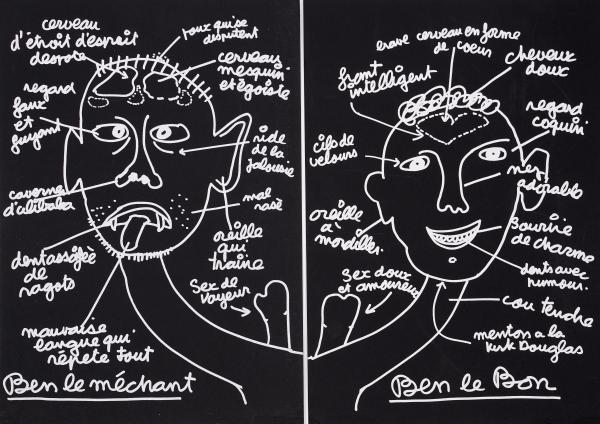 cerveau
d'étroit d'esprit
despote
poux qui se
disputent
cerveau
mesquin
et égoïste
regard
faux
et
fuyant
ride
de la
jalousie
caverne
d'alibaba
mal
rasé
dent assoiffée
de
ragots
oreille
qui
traine
Sex de
voyeur
mauvaise
langue qui
répète tout
Ben le méchant
grave cerveau en forme
de coeur
cheveux
doux
front
intelligent
regard
coquin
cils de
velours
nez
adorable
oreille
à mordiller
sourire
de charme
Sex doux
et amoureux
dents avec
humour.
cou tendre
menton a la
Kirk Douglas
Ben le Bon